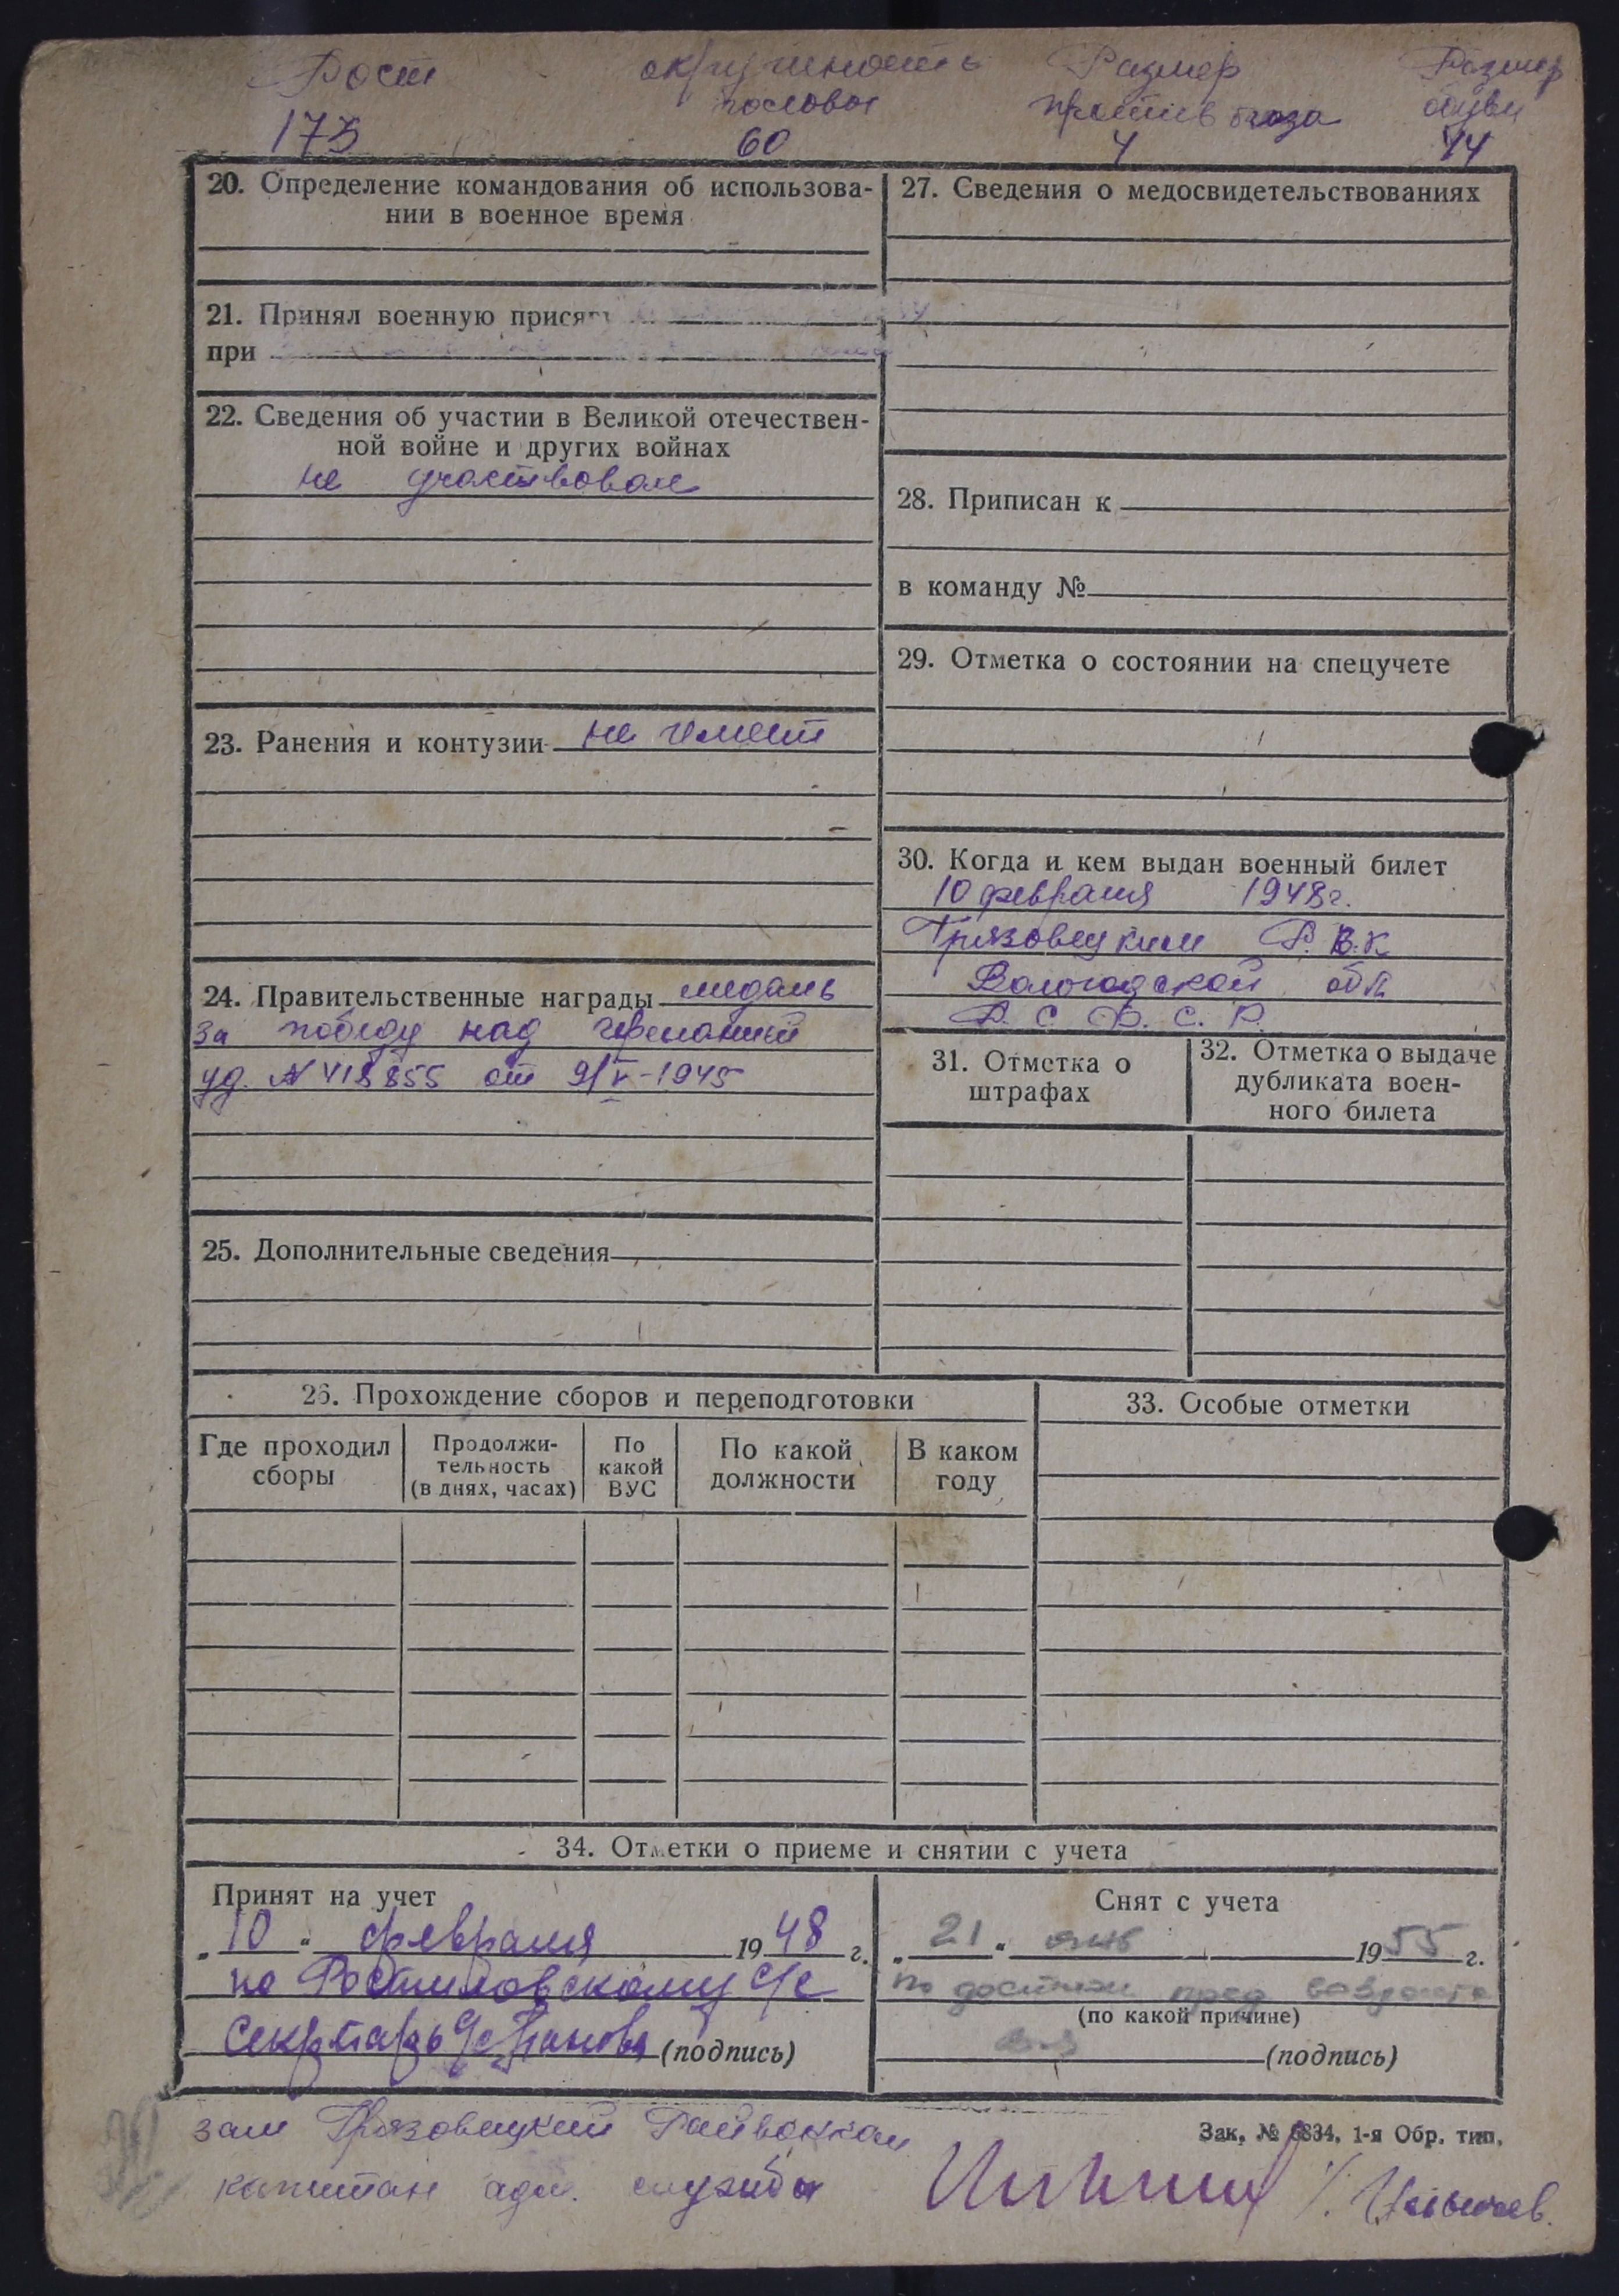 Рост окружность Размер Размер
головы противогаза обуви
173 60 4 44
20. Определение командования об использова-
нии в военное время
21. Принял военную присягу
при
22. Сведения об участии в Великой отечествен-
ной войне и других войнах
не участвовал
23. Ранения и контузии не имеет
24. Правительственные награды медаль
за победу над германией
уд. №418855 от 9/V-1945
25. Дополнительные сведения
27. Сведения о медосвидетельствованиях
28. Приписан к
в команду №
29. Отметка о состоянии на спецучете
30. Когда и кем выдан военный билет
10 февраля 1948г.
Грязовецким Р.В.К
Вологодской обл
Р.С.Ф.С.Р.
31. Отметка о
штрафах
32. Отметка о выдаче
дубликата воен-
ного билета
26. Прохождение сборов и переподготовки
Где проходил
сборы
Продолжи-
тельность
(в днях, часах)
По
какой
ВУС
По какой
должности
В каком
году
33. Особые отметки
34. Отметки о приеме и снятии с учета
Принят на учет
„10“ февраля 1948 г.
по Ростиловскому с/с
секретарь (подпись)
Снят с учета
„21“ янв 1955 г.
по достиж пред возраста
(по какой причине)
(подпись)
зам Грязовецкий Райвоенком
капитан адм. службы
Зак. № 6834. 1-я Обр. тип.